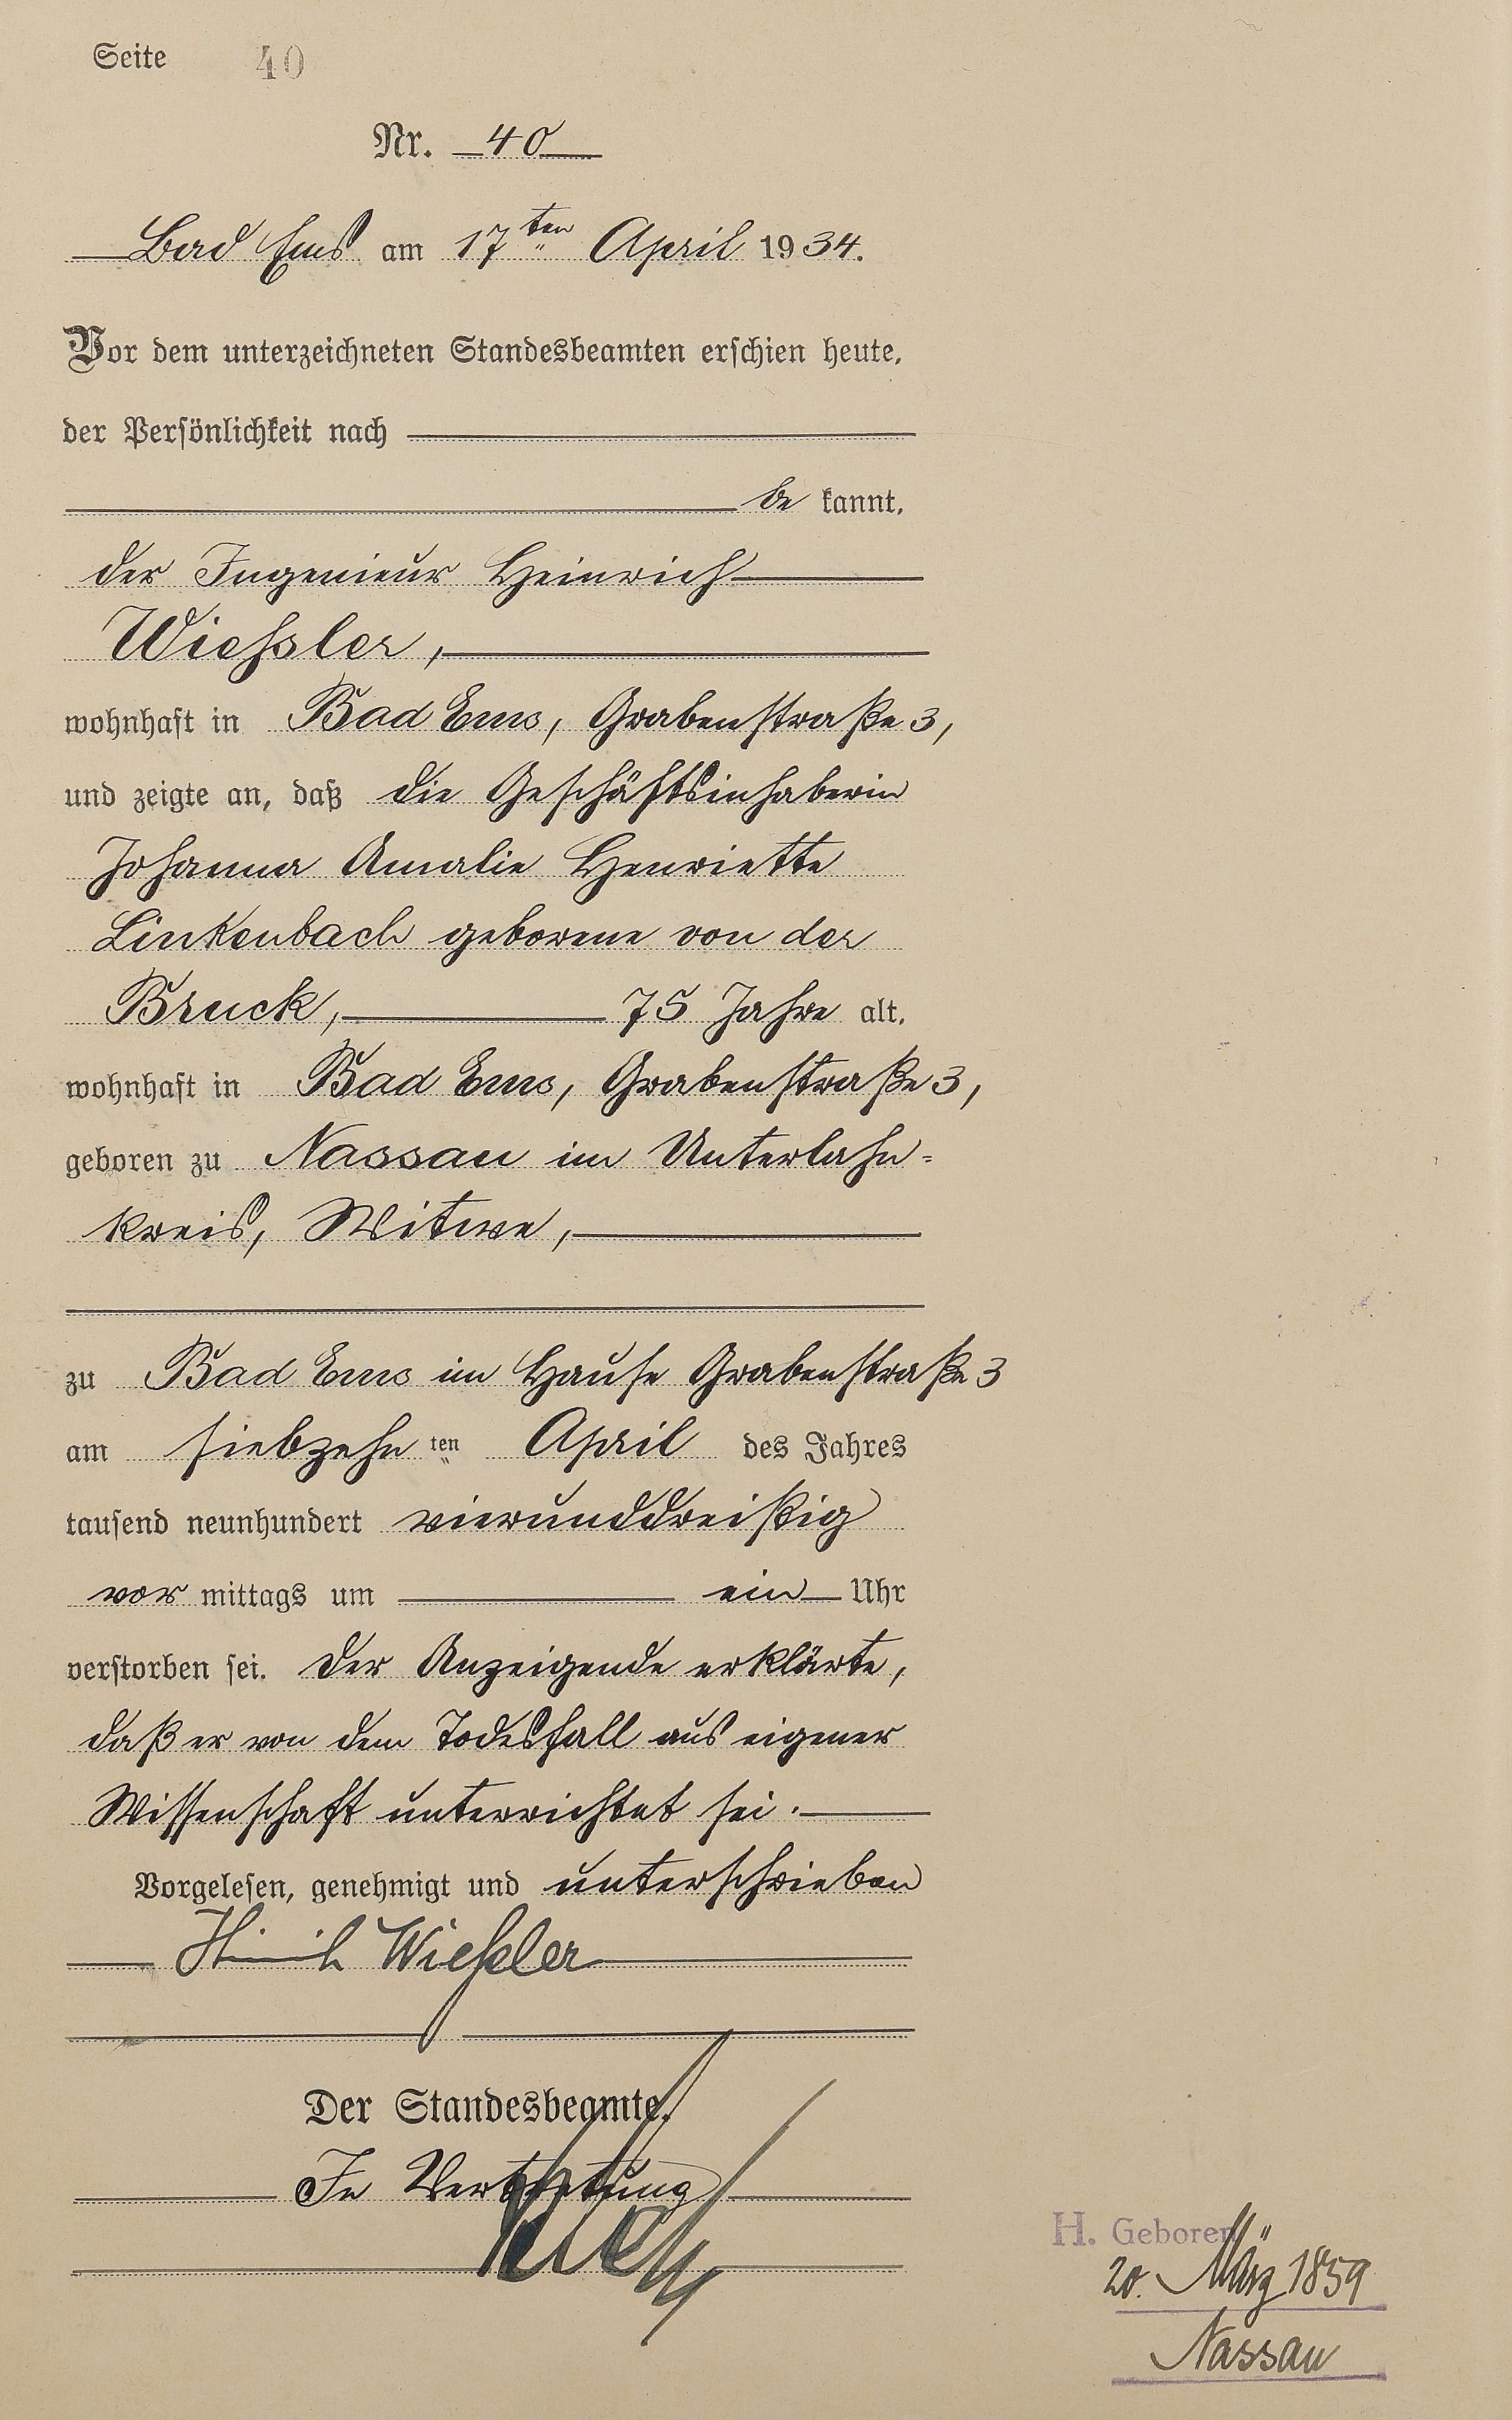 Seite 40
Nr. 40
Bad Ems am 17ten April 1934.
Vor dem unterzeichneten Standesbeamten erschien heute,
der Persönlichkeit nach
be kannt,
der Ingenieur Heinrich
Wiessler,
wohnhaft in Bad Ems, Grabenstraße 3,
und zeigte an, daß die Geschäftsinhaberin
Johanna Amalie Henriette
Linkenbach geborene von der
Bruck, 75 Jahre alt,
wohnhaft in Bad Ems, Grabenstraße 3,
geboren zu Nassau im Unterlahn-
kreis, Witwe,
zu Bad Ems im Hause Grabenstraße 3
am siebzehn ten April des Jahres
tausend neunhundert vierunddreißig
vor mittags um ein Uhr
verstorben sei. Der Anzeigende erklärte,
daß er von dem Todesfall aus eigener
Wissenschaft unterrichtet sei.
Vorgelesen, genehmigt und unterschrieben
Heinrich Wiessler
Der Standesbeamte.
In Vertretung
H. Geboren
20. März 1859
Nassau